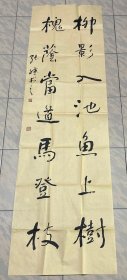 柳影入池魚上樹
槐蔭當道馬登枝